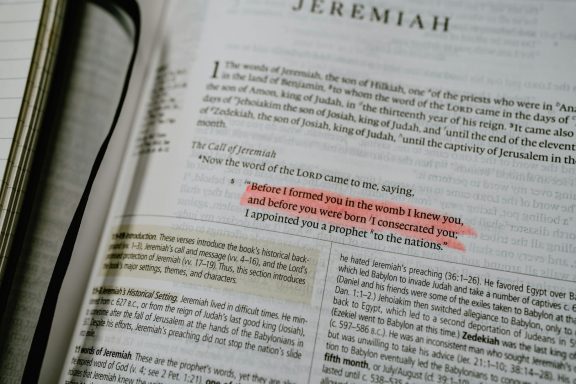 JEREMIAH
1 The words of Jeremiah, the son of Hilkiah, one of the priests who were in
in the land of Benjamin, to whom the word of the LORD came in the days of
the son of Amon, king of Judah, in the thirteenth year of his reign. It came also
days of Jehoiakim the son of Josiah, king of Judah, and until the end of the eleventh
of Zedekiah, the son of Josiah, king of Judah, until the captivity of Jerusalem in the
month.
The Call of Jeremiah
Now the word of the LORD came to me, saying,
5 "Before I formed you in the womb I knew you,
and before you were born I consecrated you;
I appointed you a prophet to the nations."
Introduction. These verses introduce the book's historical back-
(vv. 1–3), Jeremiah's call and message (vv. 4–16), and the Lord's
protection of Jeremiah (vv. 17–19). Thus, this section introduces
the book's major settings, themes, and characters.
Jeremiah's Historical Setting. Jeremiah lived in difficult times. He min-
from c. 627 B.C., or from the reign of Judah's last good king (Josiah),
someone after the fall of Jerusalem at the hands of the Babylonians in
Despite his efforts, Jeremiah's preaching did not stop the nation's slide
words of Jeremiah. These are the prophet's words, yet they are also
word of God (v. 4; see 2 Pet. 1:21).
that Jeremiah knew the
he hated Jeremiah's preaching (36:1–26). He favored Egypt over
which led Babylon to invade Judah and take a number of captives c.
(Daniel and his friends were some of the exiles taken to Babylon at
Dan. 1:1–2.) Jehoiakim then switched allegiance to Babylon, only to
back to Egypt, which led to a second deportation of Judeans in
(Ezekiel went to Babylon at this time.) Zedekiah was the last king of
(c. 597–586 B.C.). He was an inconsistent man who sought Jeremiah's
but was unwilling to take his advice (Jer. 21:1–10; 38:14–28). His
to Babylon eventually led the Babylonians to
fifth month, or July/August
lasted until c. 538–